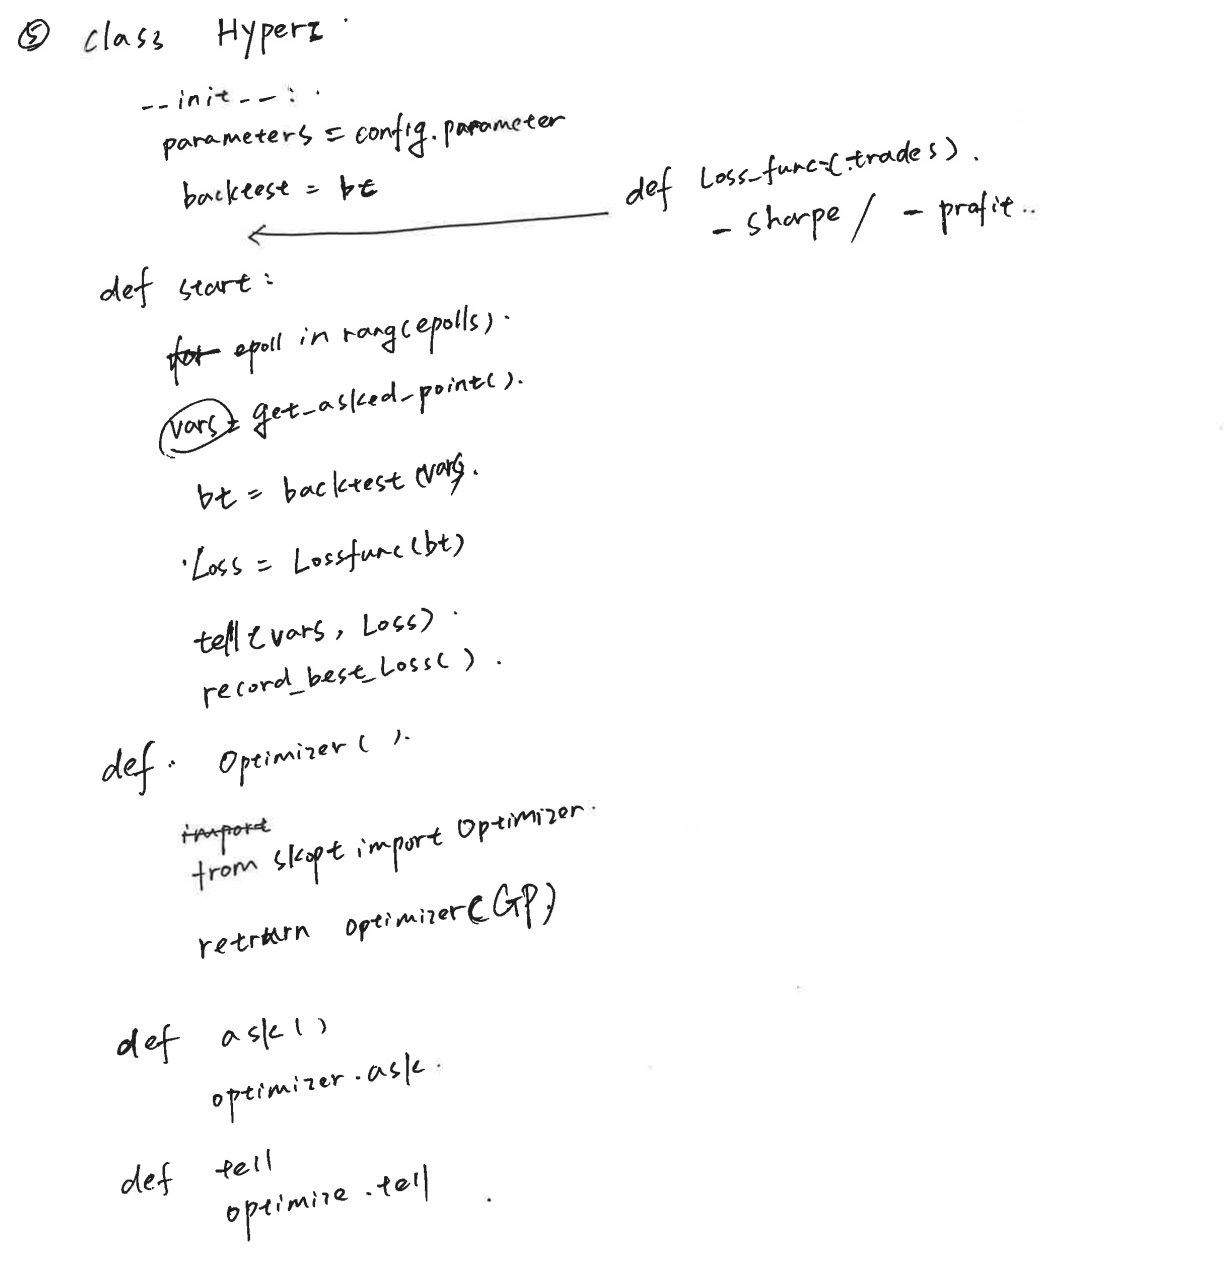 ⑤ class Hyper
--init--:
parameters = config.parameter
backtest = bt
def Loss_func(trades).
- sharpe / - profit..
def start:
for epoll in rang(epolls).
vars = get_asked_point().
bt = backtest (vars).
Loss = Lossfunc(bt)
tell(vars, Loss)
record_best_Loss().
def. Optimizer().
import
from skopt import Optimizer.
return optimizer(GP)
def ask()
optimizer.ask.
def tell
optimize.tell